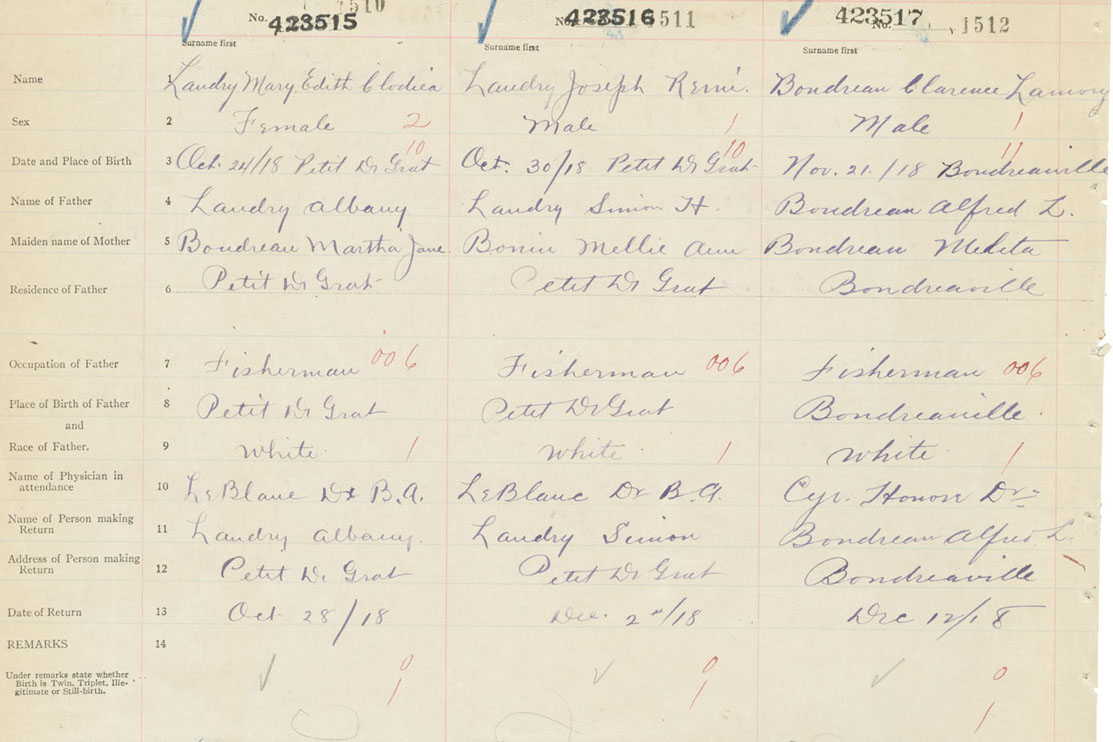 1510 1511 1512
No. 423515 No. 423516 No. 423517
Surname first Surname first Surname first
Name 1 Landry Mary Edith Clodiea Landry Joseph Remi. Boudreau Clarence
Sex 2 Female 2 Male 1 Male 1
10 10 11
Date and Place of Birth 3 Oct. 24/18 Petit Dr Grat Oct. 30/18 Petit Dr Grat Nov. 21./18 Boudreauville
Name of Father 4 Landry Albany Landry Simon H. Boudreau Alfred L.
Maiden name of Mother 5 Boudreau Martha Jane Bonin Mellie Ann Boudreau
Residence of Father 6 Petit Dr Grat Petit Dr Grat Boudreauville
Occupation of Father 7 Fisherman 006 Fisherman 006 Fisherman 006
Place of Birth of Father 8 Petit Dr Grat Petit Dr Grat Boudreauville
and
Race of Father. 9 White 1 White 1 White 1
Name of Physician in
attendance 10 LeBlanc Dr B.A. LeBlanc Dr B.A. Cyr. Honore Dr
Name of Person making
Return 11 Landry Albany. Landry Simon Boudreau Alfred L.
Address of Person making
Return 12 Petit Dr Grat Petit Dr Grat Boudreauville
Date of Return 13 Oct 28/18 Dec. 2nd/18 Dec 12/18
REMARKS 14
Under remarks state whether
Birth is Twin, Triplet, Ille-
gitimate or Still-birth.
0 0 0
1 1 1